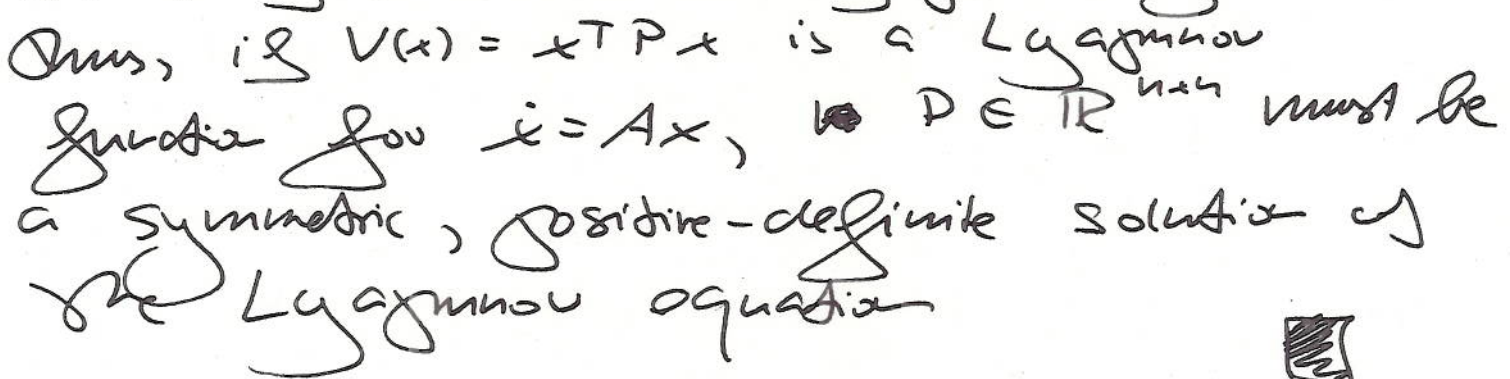 Thus, if V(x) = xᵀPx is a Lyapunov
function for ẋ = Ax, P ∈ ℝⁿˣⁿ must be
a symmetric, positive-definite solution of
the Lyapunov equation